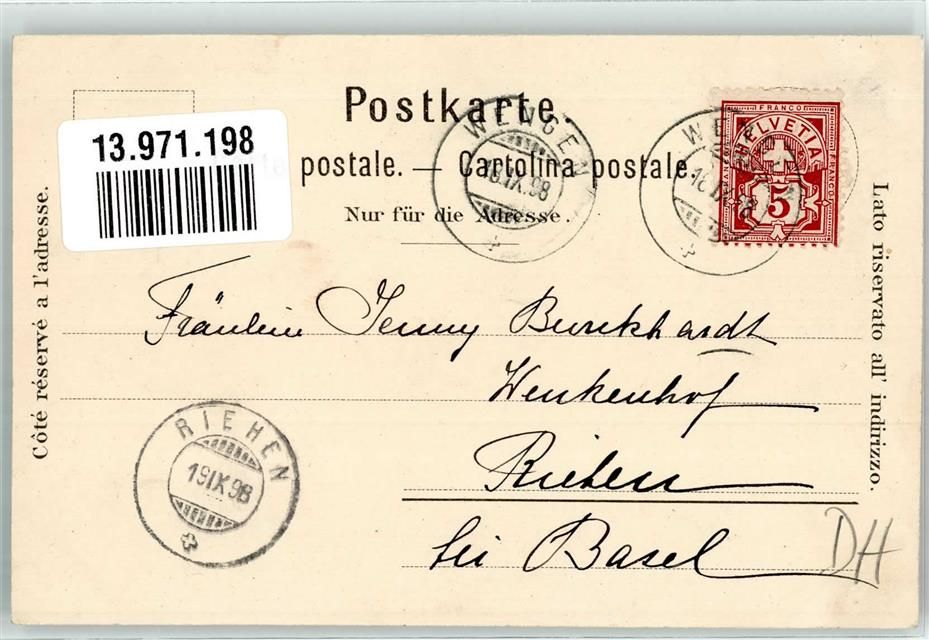 Postkarte.
13.971.198
postale. — Cartolina postale.
Nur für die Adresse.
Côté réservé a l'adresse.
Lato riservato all' indirizzo.
WENGEN
18.IX.98
WEN
FRANCO
HELVETIA
FRANCO
FRANCO
5
Fräulein Jenny Burckhardt
Wenkenhof
Riehen
bei Basel
RIEHEN
19.IX.98
DH